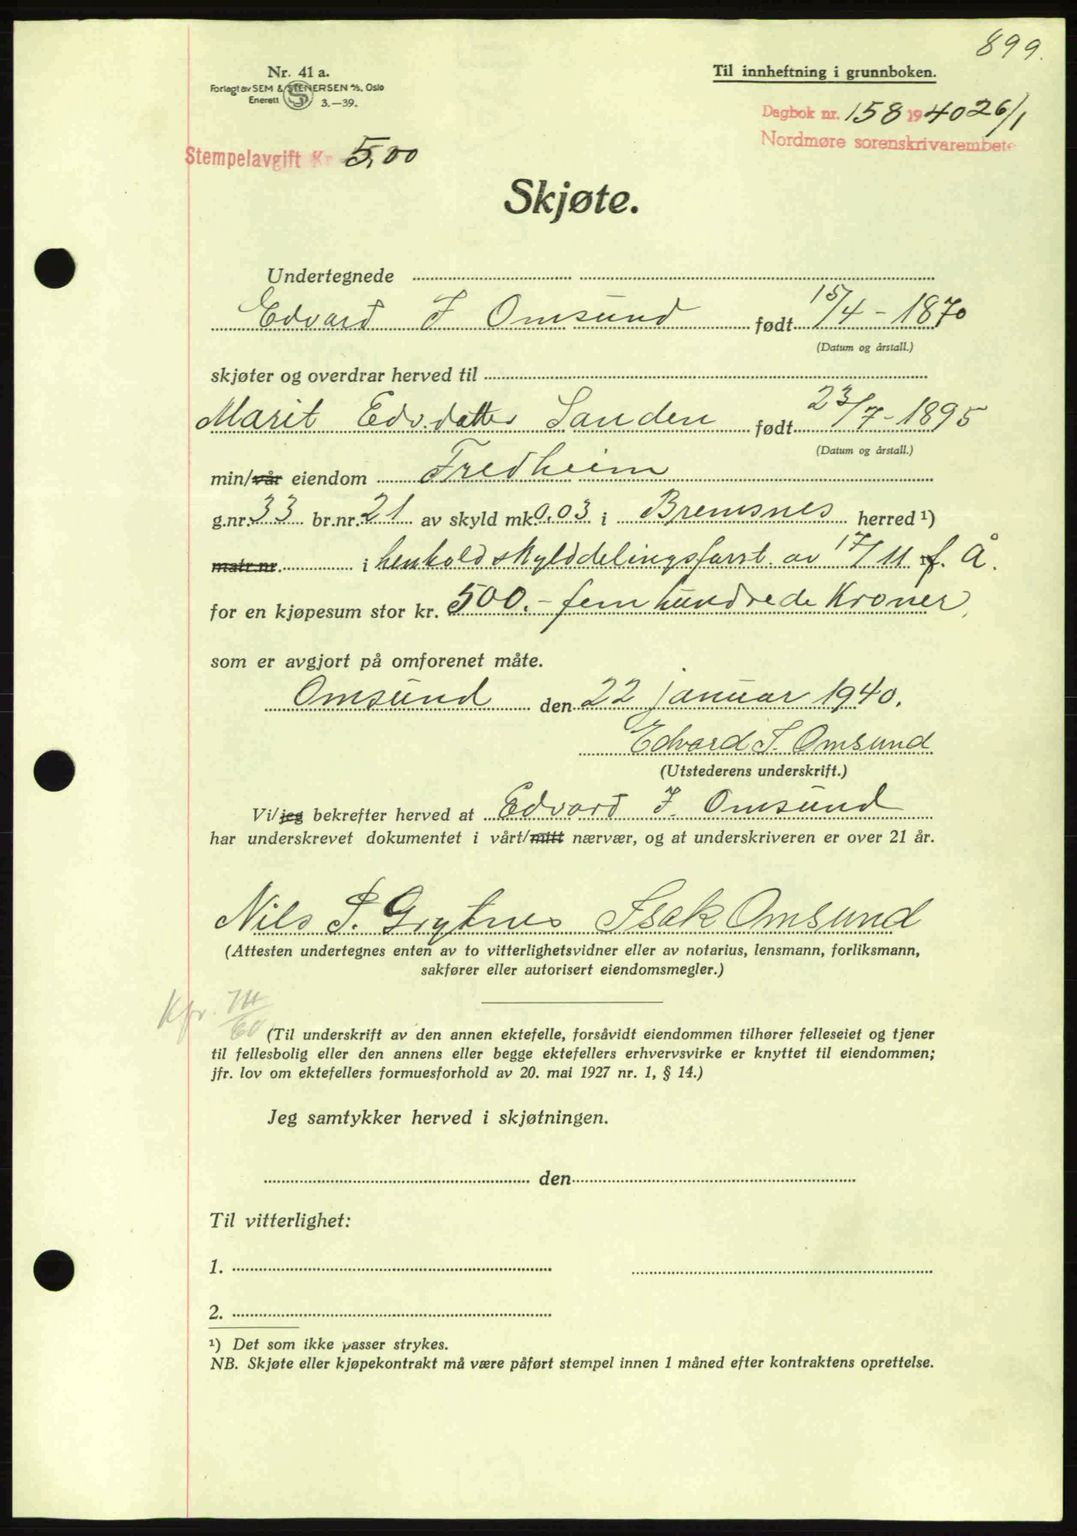 899.
Nr. 41 a.
Forlagt av SEM & STENERSEN A/S, Oslo
Enerett 3.—39.
Til innheftning i grunnboken.
Dagbok nr. 158 1940 26/1
Nordmøre sorenskrivarembete
Stempelavgift Kr 5,00
Skjøte.
Undertegnede
Edvard I Omsund født 15/4 - 1870
(Datum og årstall.)
skjøter og overdrar herved til
Marit Edv.datter Sanden født 23/7 - 1895
(Datum og årstall.)
min/vår eiendom Fredheim
g.nr. 33 br.nr. 21 av skyld mk 0,03 i Bremsnes herred ¹)
matr.nr. i henhold skylddelingsforr. av 17/11 f. Å.
for en kjøpesum stor kr. 500.- fem hundrede Kroner,
som er avgjort på omforenet måte.
Omsund den 22 januar 1940.
Edvard I. Omsund
(Utstederens underskrift.)
Vi/jeg bekrefter herved at Edvard I. Omsund
har underskrevet dokumentet i vårt/mitt nærvær, og at underskriveren er over 21 år.
Nils P. Grytnes Isak Omsund
(Attesten undertegnes enten av to vitterlighetsvidner eller av notarius, lensmann, forliksmann,
sakfører eller autorisert eiendomsmegler.)
(Til underskrift av den annen ektefelle, forsåvidt eiendommen tilhører felleseiet og tjener
til fellesbolig eller den annens eller begge ektefellers erhvervsvirke er knyttet til eiendommen;
jfr. lov om ektefellers formuesforhold av 20. mai 1927 nr. 1, § 14.)
Jeg samtykker herved i skjøtningen.
den
Til vitterlighet:
1.
2.
¹) Det som ikke passer strykes.
NB. Skjøte eller kjøpekontrakt må være påført stempel innen 1 måned efter kontraktens oprettelse.